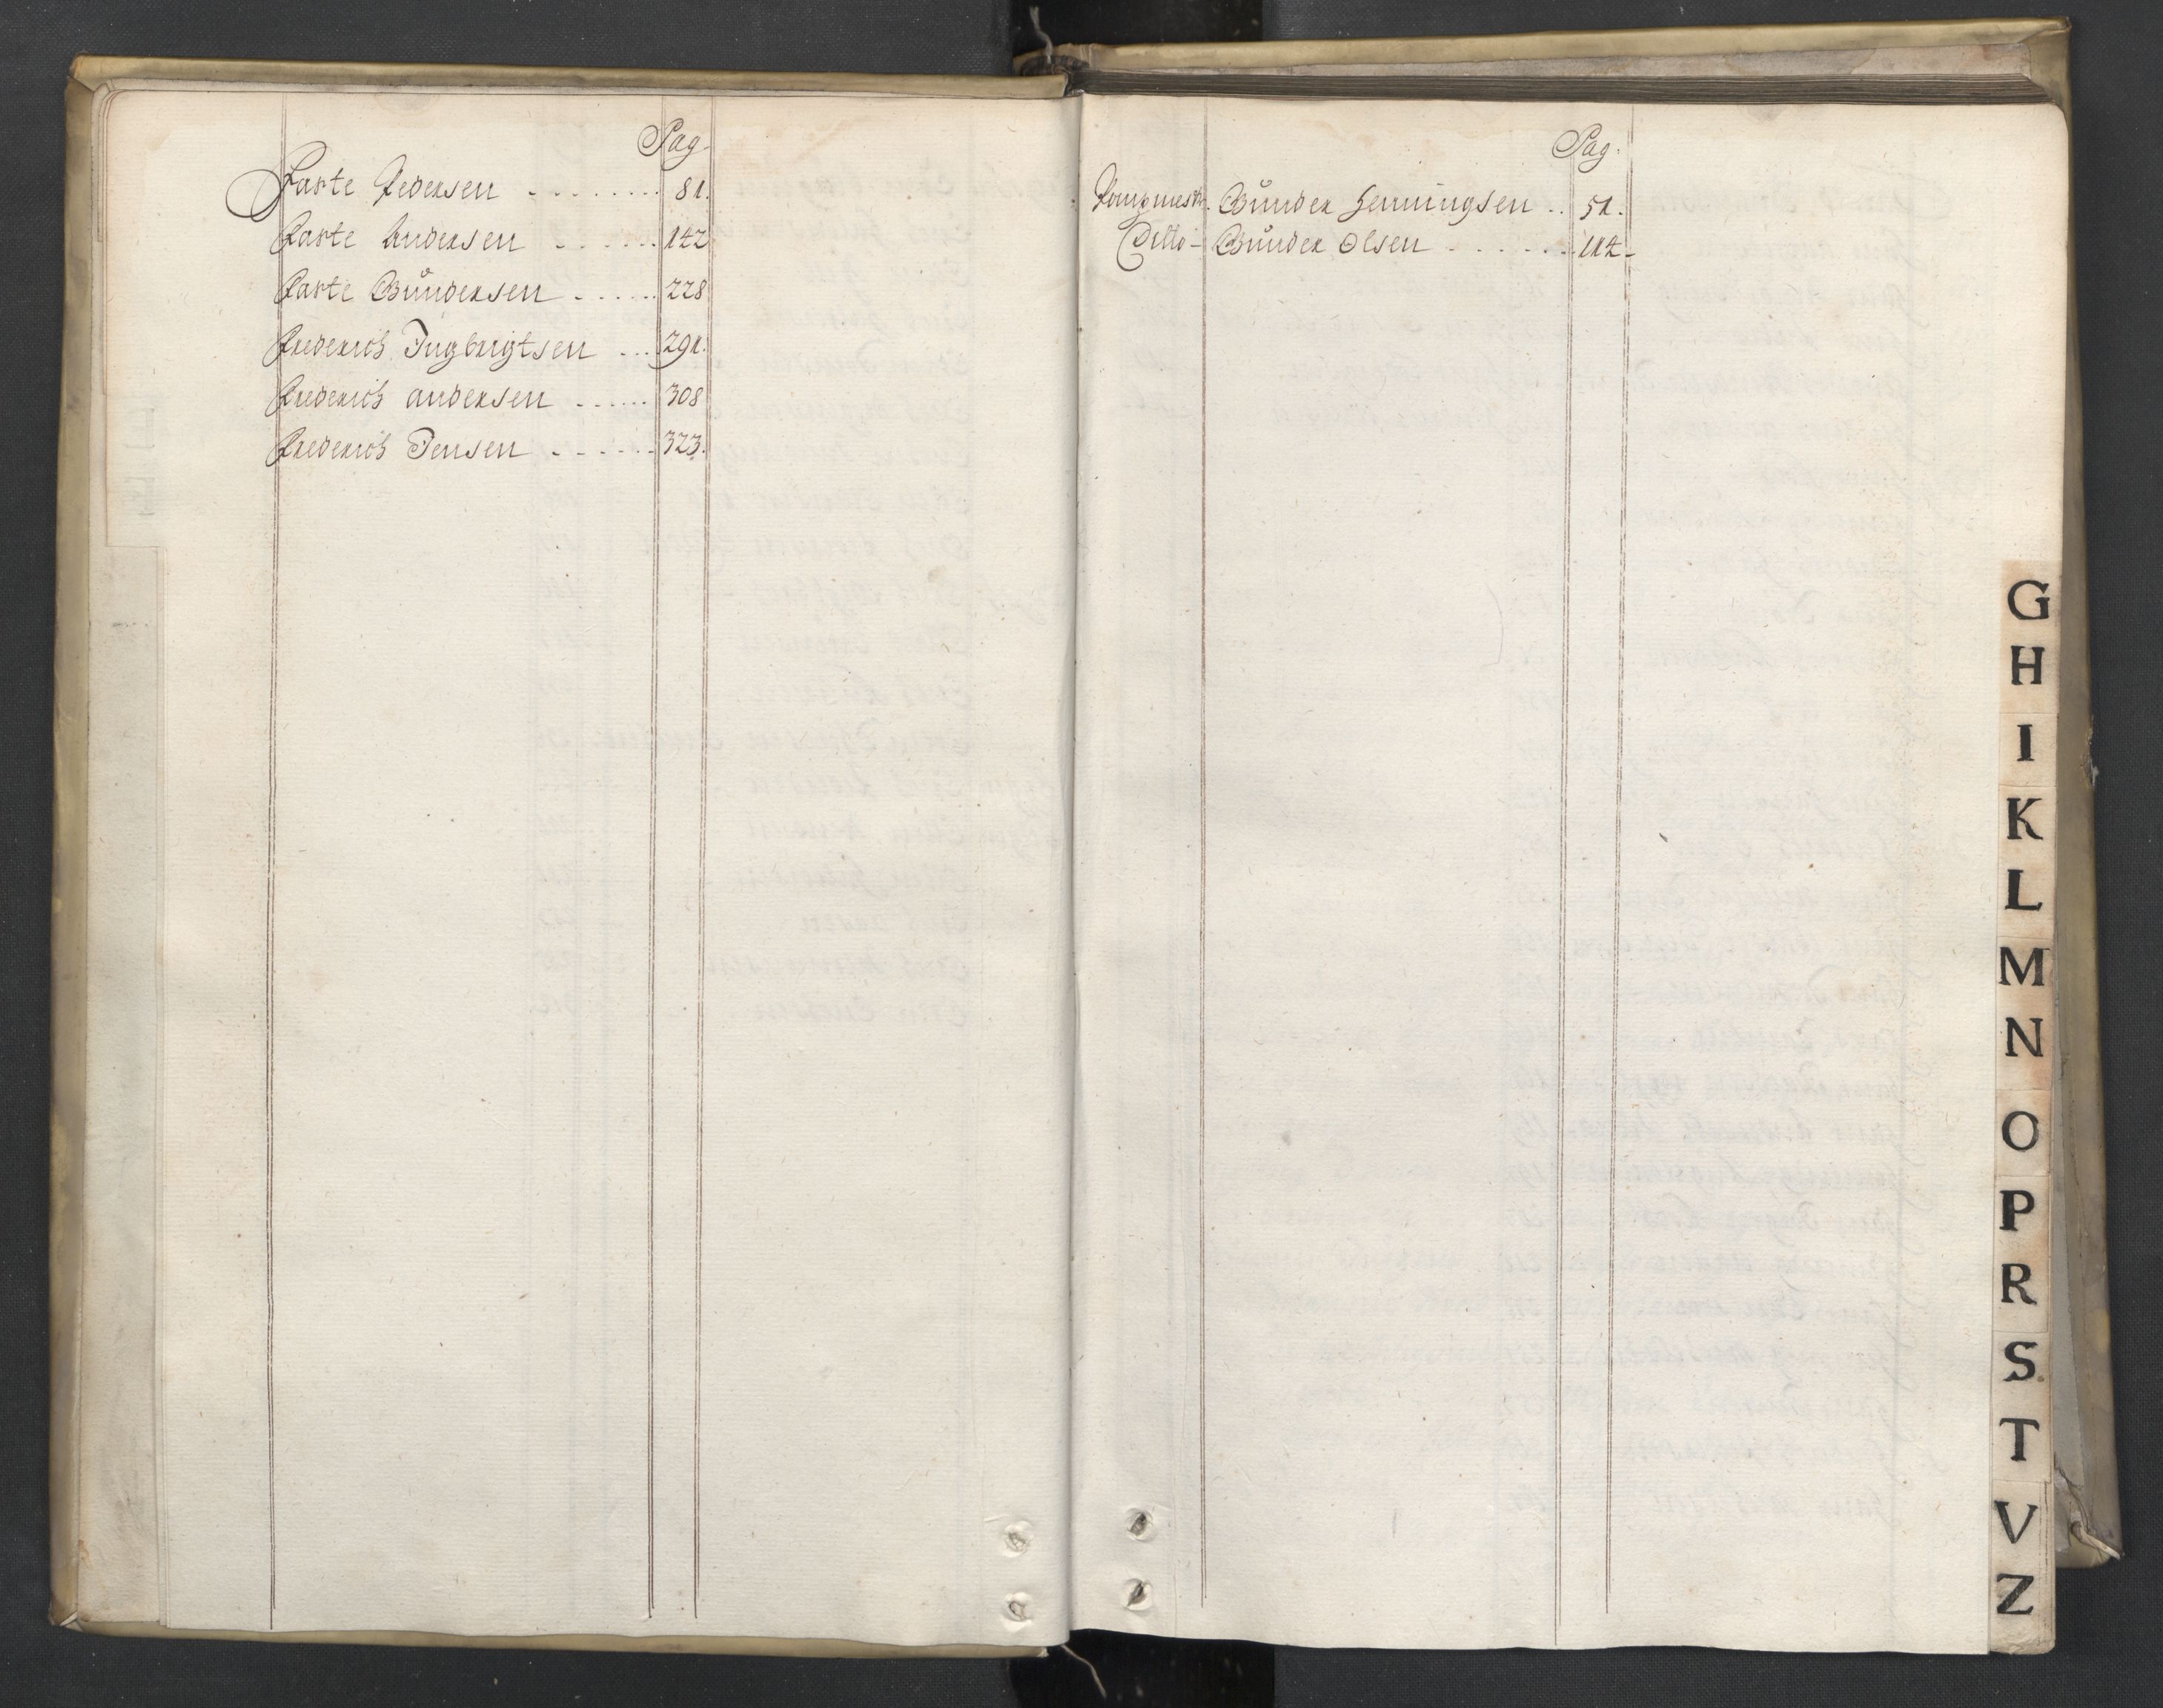 Pag.
Faste Pedersen - - - - - - - - 81.
Faste Andersen - - - - - - 142
Faste Gündersen - - - - - - 228
Frederich Ingbrigtsen - - - 291.
Frederich andersen - - - - - - 308
Frederich Jensen - - - - - - 323.
Pag.
Pompmestr. Günder Henningsen - - 51.
Ditto - Günder Olsen - - - - - - - 114 -
G
H
I
K
L
M
N
O
P
R
S.
T
V
Z